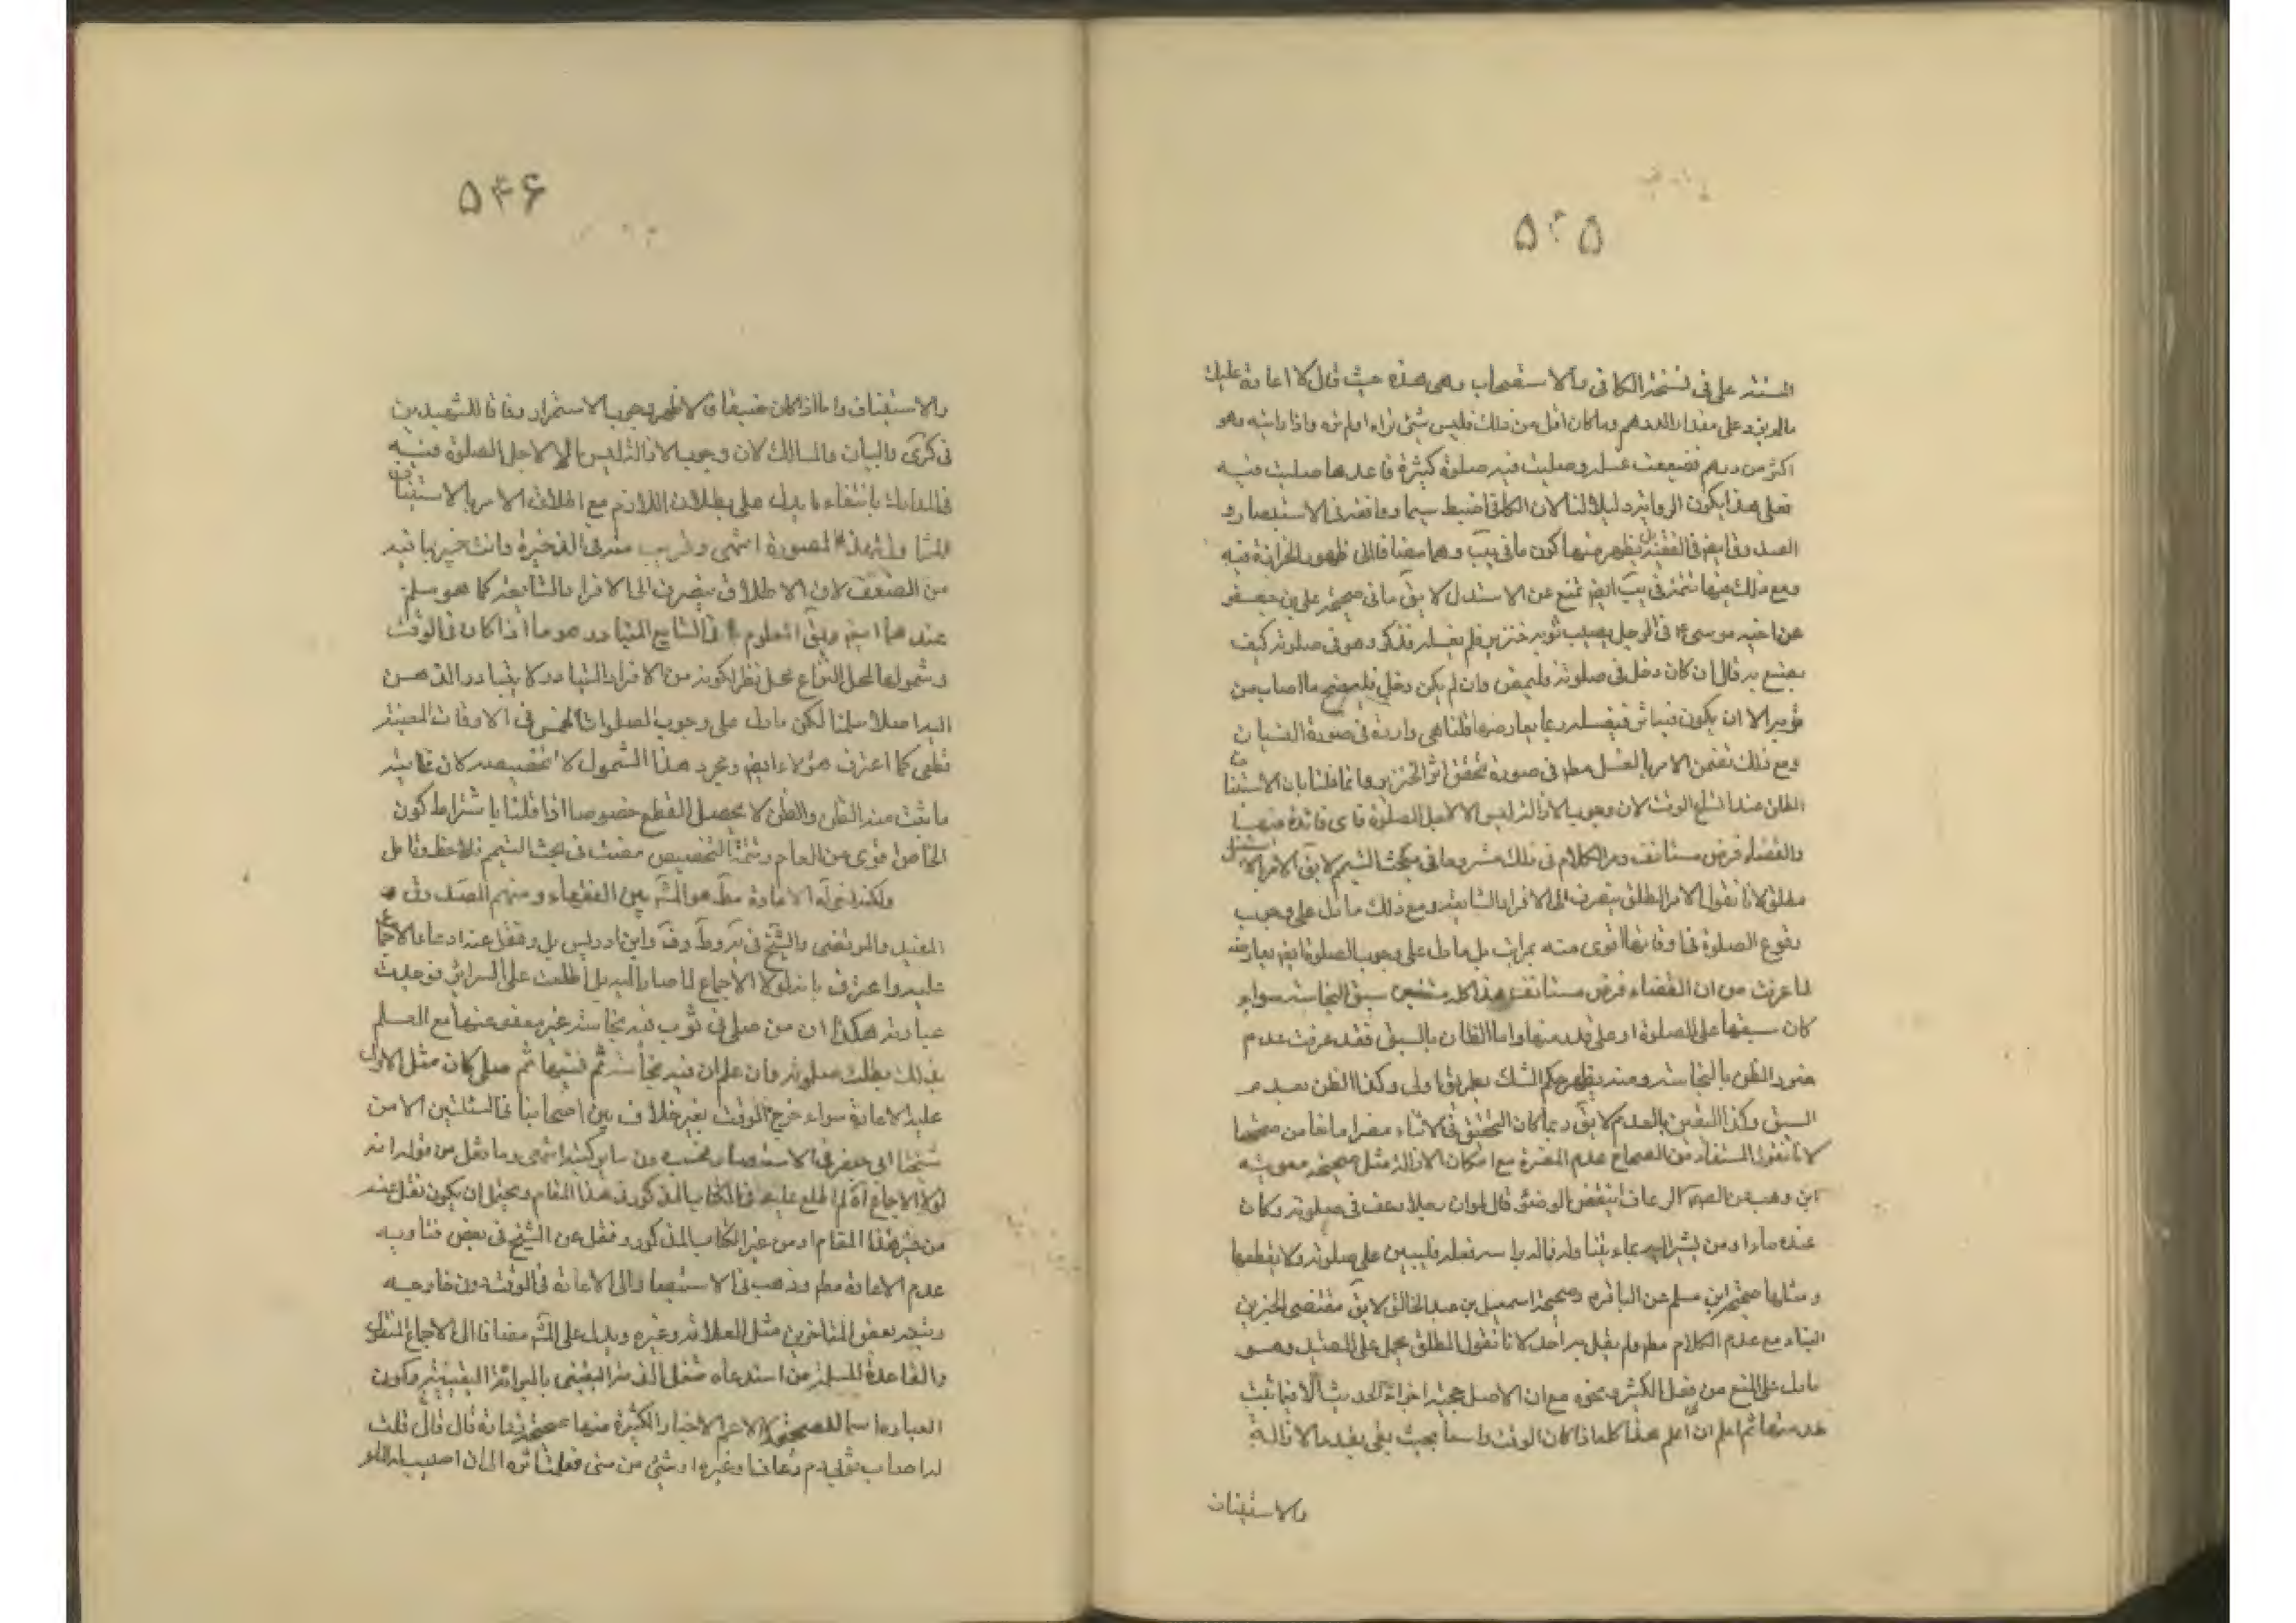 ۵۴۵
المستند على في نسخة الكافي والاستصحاب وهي هذه حيث قال لا اعادة عليك
مالم يزد على مقدار الدرهم وما كان اقل من ذلك فليس بشئ تراه او لم تره واذا رايته وهو
اكثر من درهم فضيعت غسله وصليت فيه صلوة كثيرة فاعد ما صليت فيه
فعلى هذا يكون الرواية دليلا لنا لان الكافي اضبط سيما وموافقة في الاستبصار و
الصدوق ايضا في الفقيه بل يظهر منها كون ما في يب وهما مضافا الى ظهور الحزازة فيه
ومع ذلك فيها تتمة في يب ايضا تمنع عن الاستدلال لا يق ما في صحيحة علي بن جعفر
عن اخيه موسى ع في الرجل يصيب ثوبه خنزير فلم يغسله فذكر وهو في صلوته كيف
يصنع به قال ان كان دخل في صلوته فليمض وان لم يكن دخل فلينضح ما اصاب من
ثوبه الا ان يكون فيه اثر فيغسله ربما يعارضها قلنا هي واردة في صورة النسيان
ومع ذلك تضمن الامر بالغسل مطم في صورة تحقق اثر الخنزير وانما قلنا بان الاستينا
ف
الظن عند اتسع الوقت لان وجوب الازالة ليس الا لاجل الصلوة فاى فائدة فيها
والقضاء فرض مستانف ومر الكلام في ذلك مشروحا في مبحث التيمم لا يق الامر بالا
ستقبال
مطلق لانا نقول الامر المطلق ينصرف الى الافراد الشايعة ومع ذلك ما دل على وجوب
وقوع الصلوة في اوقاتها اقوى منه بمراتب بل ما دل على وجوب الصلوة ايضا يعارضه
لما عرفت من ان القضاء فرض مستانف هذا كله متيقن سبق النجاسة سواء
كان سبقها على الصلوة او على قدر منها واما الظان بالسبق فقد عرفت عدم
ضرر الظن بالنجاسة ومنه يظهر حكم الشك بطريق اولى وكذا الظن بعدم
السبق وكذا اليقين بالعدم لا يق ربما كان التحقق في الاثناء مضرا مانعا من صحتها
لانا نقول المستفاد من الصحاح عدم المضرة مع امكان الازالة مثل صحيحة معوية
ابن وهب عن الصم الرعاف اينقض الوضوء قال لو ان رجلا رعف في صلوته وكان
عنده ماء او من يشير اليه بماء فتناوله فقال براسه فغسله فليبن على صلوته ولا يقطعها
ومثلها صحيحة ابن مسلم عن الباقر ع وصحيحة اسمعيل بن عبد الخالق لا يق مقتضى الخبرين
البناء مع عدم الكلام مطم ولم يقل به احد لانا نقول المطلق يحمل على المقيد وهو
ما دل على المنع من فعل الكثير ونحوه مع ان الاصل حجية اجزاء الحديث الا فيما ثبت
عدمها ثم اعلم ان هذا كله اذا كان الوقت واسعا بحيث يفي بقدر الازالة
والاستيناف
۵۴۶
والاستيناف واما اذا كان ضيقا فالاظهر وجوب الاستمرار وفاقا للشهيدين
في كرى والبيان والمسالك لان وجوب الازالة ليس الا لاجل الصلوة وفيه
في المدارك بانتفاء ما يدل على بطلان اللازم مع اطلاق الامر بالاستيناف
المتناول لهذه الصورة انتهى وقريب منه في الذخيرة وانت خبير بما فيه
من الضعف لان الاطلاق ينصرف الى الافراد الشايعة كما هو مسلم
عندهما ايضا وبقى المعلوم في الشايع المتبادر هو ما اذا كان في الوقت
وشمولها لمحل النزاع محل نظر لكونه من الافراد النادرة لا يتبادر الذهن
اليه اصلا سلمنا لكن ما دل على وجوب الصلوات الخمس في الاوقات المعينة
قطعي كما اعترف هؤلاء ايضا ومجرد هذا الشمول لا تخصيصه لان غاية
ما يثبت منه الظن والظن لا يحصل القطع خصوصا اذا قلنا باشتراط كون
الخاص اقوى من العام وتتمة التخصيص مضت في بحث التيمم فلاحظ وتامل
ولكنه نجاسة الاعادة مطم هو المشهور بين الفقهاء ومنهم الصدوق و
المفيد والمرتضى والشيخ في يه وط وف وابن ادريس بل ونقل عنه ادعاء الاجما
ع
عليه واعترف بانه لولا الاجماع لما صار اليه بل اطلعت على السرائر فوجدت
عبارته هكذا ان من صلى في ثوب فيه نجاسة غير معفو عنها مع العلم
بذلك بطلت صلوته وان علم ان فيه نجاسة ثم نسيها ثم صلى كان مثل الاول
عليه الاعادة سواء خرج الوقت بغير خلاف بين اصحابنا في المسئلتين الا من
شيخنا ابي جعفر في الاستبصار فحسب دون ساير كتبه انتهى وما نقل من قوله انه
لولا الاجماع اه لم اطلع عليه في الكتاب المذكور في هذا المقام ويحتمل ان يكون نقل عنه
من غير هذا المقام او من غير الكتاب المذكور ونقل عن الشيخ في بعض فتاويه
عدم الاعادة مطم وذهب في الاستبصار الى الاعادة في الوقت دون خارجه
وتبعه بعض المتاخرين مثل العلامة وغيره ويدل على المشهور مضافا الى الاجماع المنقول
والقاعدة المسلمة من استدعاء شغل الذمة اليقيني بالبرائة اليقينية وكون
العبادة اسما للصحيحة لا الاعم الاخبار الكثيرة منها صحيحة زرارة قال قلت
له اصاب ثوبي دم رعاف او غيره او شئ من مني فعلمت اثره الى ان اصيب له الماء